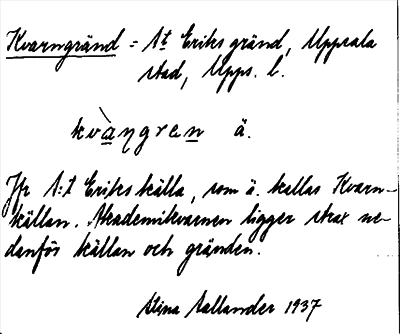 Kvarngränd = S:t Eriks gränd, Uppsala
stad, Upps. l.
kvàŋgren ä.
Jfr S:t Eriks källa, som ä. kallas Kvarn-
källan. Akademikvarnen ligger strax ne-
danför källan och gränden.
Stina Sallander 1937